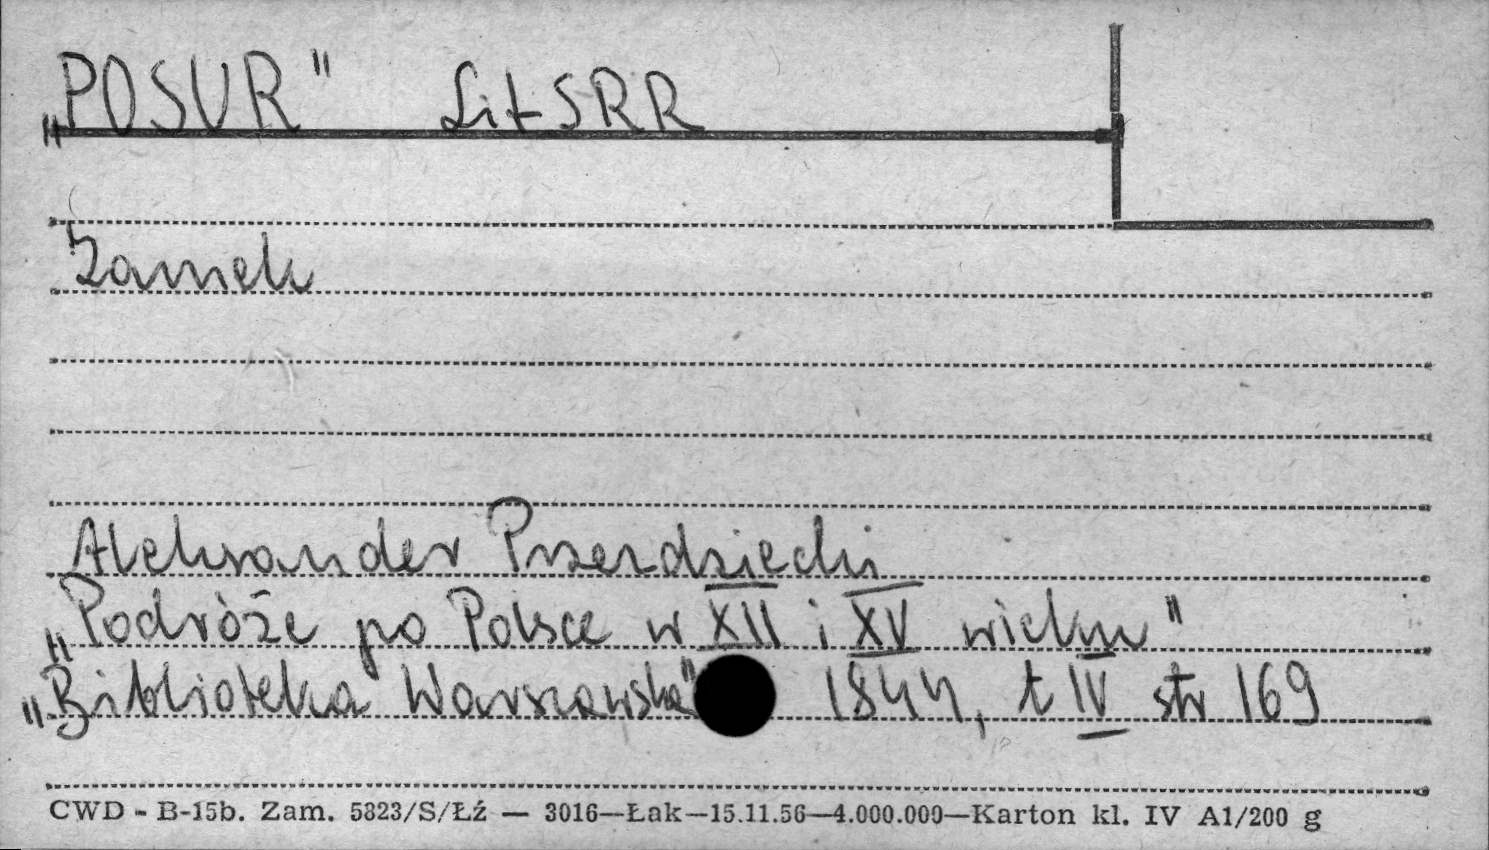 „POSUR" LitSRR
Zamek
Aleksander Przezdziecki
„Podróże po Polsce w XII i XV wieku"
„Biblioteka Warszawska" 1844, t IV str 169
CWD - B-15b. Zam. 5823/S/Łź — 3016—Łak—15.11.56—4.000.000—Karton kl. IV A1/200 g